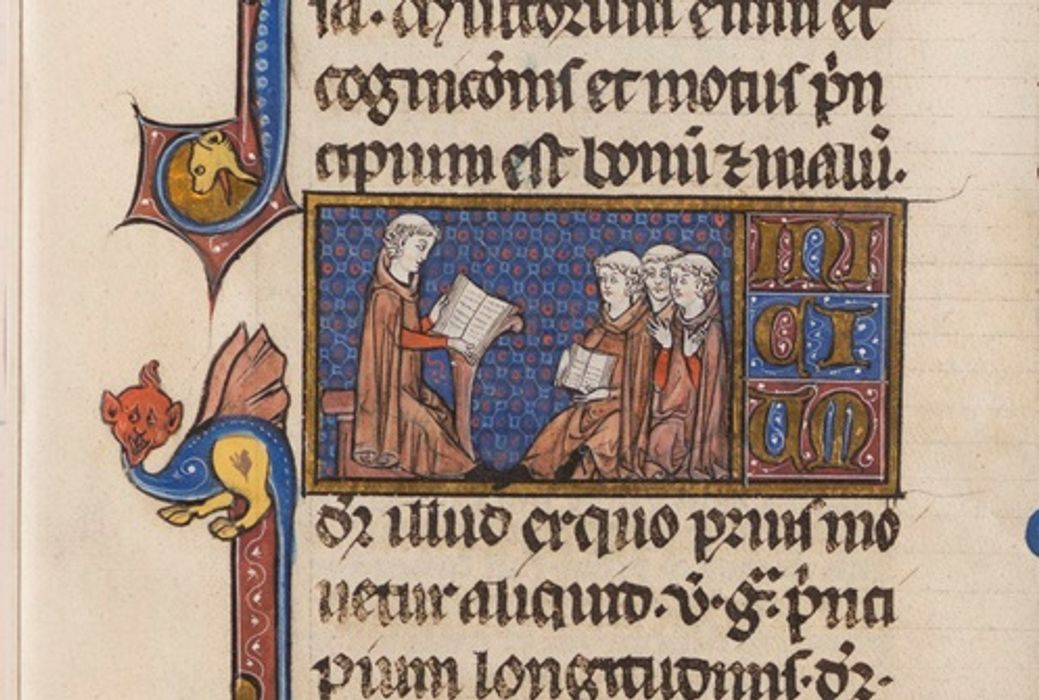 ia. Multorum enim et
cognicōnis et motus p̄n
cipium est bonū ⁊ malū.
INI
CI
UM
dr̄ illud ex quo prius mo
uetur aliquid. v̄. gͣ. p̄nci
pium longitudinis. dr̄.